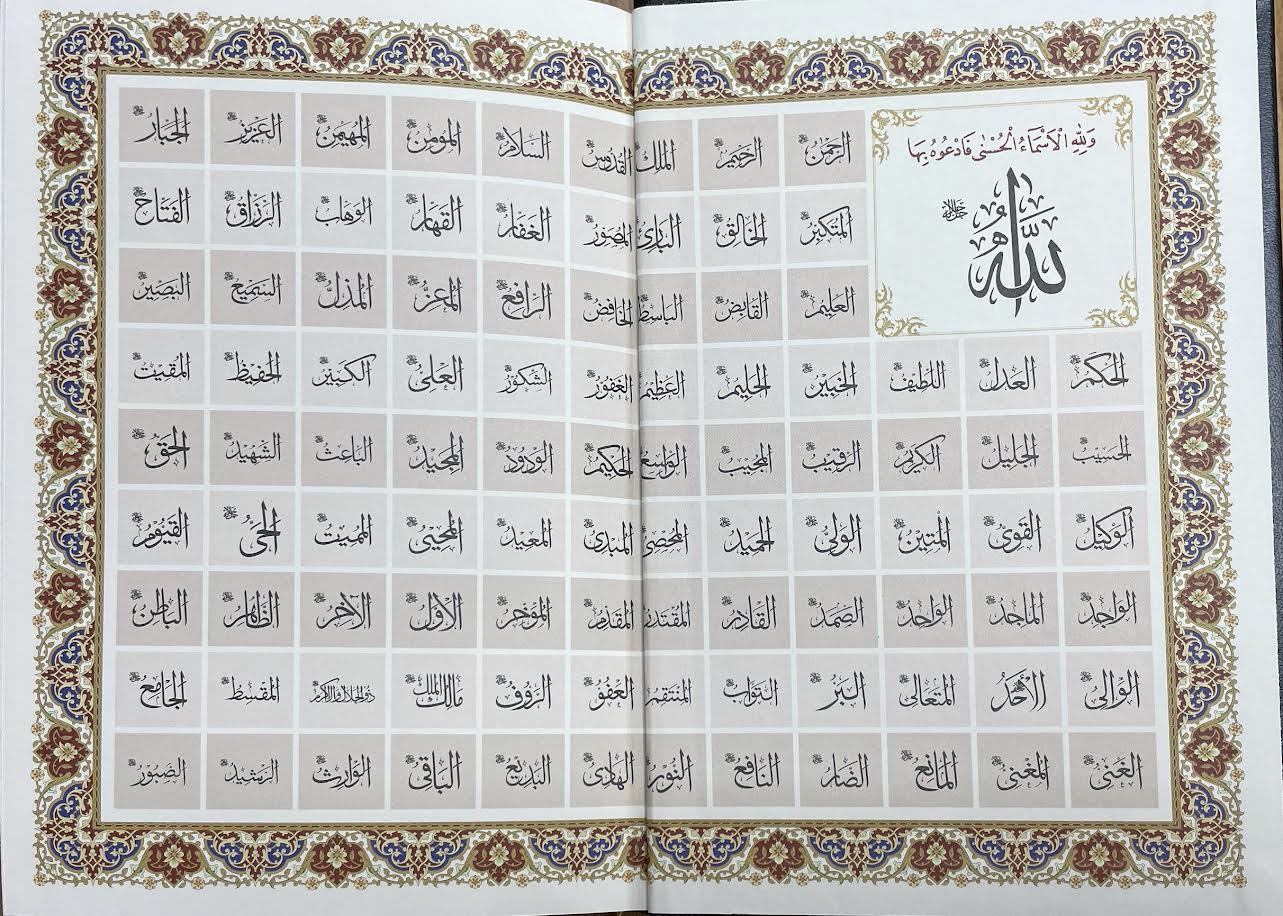 وَلِلّٰهِ الْاَسْمَٓاءُ الْحُسْنٰى فَادْعُوهُ بِهَا
اللّٰهُ جل جلاله
الرَّحْمٰنُ الرَّحٖيمُ الْمَلِكُ الْقُدُّوسُ السَّلَامُ الْمُؤْمِنُ الْمُهَيْمِنُ الْعَزٖيزُ الْجَبَّارُ
الْمُتَكَبِّرُ الْخَالِقُ الْبَارِئُ الْمُصَوِّرُ الْغَفَّارُ الْقَهَّارُ الْوَهَّابُ الرَّزَّاقُ الْفَتَّاحُ
الْعَلٖيمُ الْقَابِضُ الْبَاسِطُ الْخَافِضُ الرَّافِعُ الْمُعِزُّ الْمُذِلُّ السَّمٖيعُ الْبَصٖيرُ
الْحَكَمُ الْعَدْلُ اللَّطٖيفُ الْخَبٖيرُ الْحَلٖيمُ الْعَظٖيمُ الْغَفُورُ الشَّكُورُ الْعَلِىُّ الْكَبٖيرُ الْحَفٖيظُ الْمُقٖيتُ
الْحَسٖيبُ الْجَلٖيلُ الْكَرٖيمُ الرَّقٖيبُ الْمُجٖيبُ الْوَاسِعُ الْحَكٖيمُ الْوَدُودُ الْمَجٖيدُ الْبَاعِثُ الشَّهٖيدُ الْحَقُّ
الْوَكٖيلُ الْقَوِىُّ الْمَتٖينُ الْوَلِىُّ الْحَمٖيدُ الْمُحْصٖى الْمُبْدِئُ الْمُعٖيدُ الْمُحْيٖى الْمُمٖيتُ الْحَىُّ الْقَيُّومُ
الْوَاجِدُ الْمَاجِدُ الْوَاحِدُ الصَّمَدُ الْقَادِرُ الْمُقْتَدِرُ الْمُقَدِّمُ الْمُؤَخِّرُ الْاَوَّلُ الْاٰخِرُ الظَّاهِرُ الْبَاطِنُ
الْوَالٖى الْاَحَدُ الْمُتَعَالٖى الْبَرُّ التَّوَّابُ الْمُنْتَقِمُ الْعَفُوُّ الرَّؤُفُ مَالِكُ الْمُلْكِ ذُو الْجَلَالِ وَالْاِكْرَامِ الْمُقْسِطُ الْجَامِعُ
الْغَنِىُّ الْمُغْنٖى الْمَانِعُ الضَّارُّ النَّافِعُ النُّورُ الْهَادٖى الْبَدٖيعُ الْبَاقٖى الْوَارِثُ الرَّشٖيدُ الصَّبُورُ